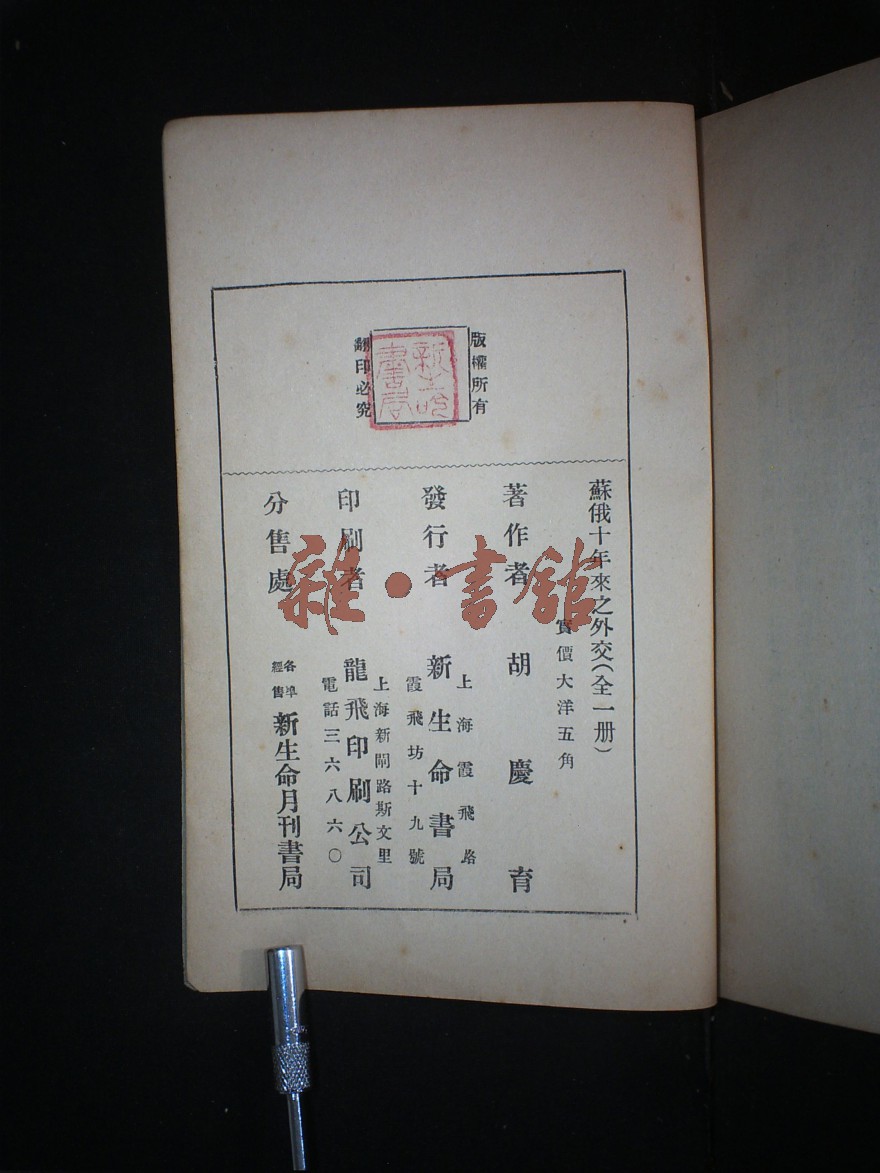 版權所有
新生命書局
翻印必究
蘇俄十年來之外交（全一册）
實價大洋五角
著作者 胡慶育
發行者 新生命書局
上海霞飛路
霞飛坊十九號
印刷者 龍飛印刷公司
上海新閘路斯文里
電話三六八六〇
分售處 各埠經售 新生命月刊書局
雜·書館